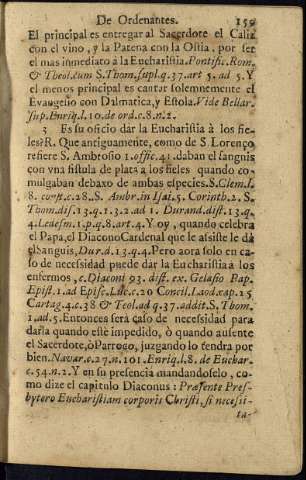 De Ordenantes. 159
El principal es entregar al Sacerdote el Caliz
con el vino, y la Patena con la Ostia, por ser
el mas inmediato à la Eucharistia. Pontifi. Rom.
& Theol. cum S. Thom. supl. q. 37. art 5. ad 5. Y
el menos principal es cantar solemnemente el
Evangelio con Dalmatica, y Estola. Vide Bellar.
sup. Enriq. l. 10. de ord. c. 8. n. 2.
3 Es su oficio dàr la Eucharistia à los fie-
les? R. Que antiguamente, como de S. Lorenço
refiere S. Ambrosio 1. offic. 41. daban el sanguis
con vna fistula de plata à los fieles quando co-
mulgaban debaxo de ambas especies. S. Clem. l.
8. const. c. 28. S. Ambr. in Isai. 5. Corinth. 2. S.
Thom. dis. 13. q. 1. 3. 2. ad 1. Durand. dist. 13. q.
4. Ledesm. 1. p. q. 8. art. 4. Y oy, quando celebra
el Papa, el Diacono Cardenal que le assiste le dà
el Sanguis, Dur. d. 13. q. 4. Pero aora solo en ca-
so de necessidad puede dàr la Eucharistia à los
enfermos, c. Diaconi 93. dist. ex. Gelasio Pap.
Epist. 1. ad Episc. Luc. c. 20 Concil. Laod. cap. 15
Cartag. 4. c. 38 & Teol. ad q. 37. addit. S. Thom.
1. ad. 5. Entonces serà caso de necessidad para
darla quando estè impedido, ò quando ausente
el Sacerdote, ò Parroço, juzgando lo tendra por
bien. Navar. c. 27. n. 101. Enriq. l. 8. de Euchar.
c. 54. n. 2. Y en su presencia mandandoselo, co-
mo dize el capitulo Diaconus: Præsente Pres-
bytero Eucharistiam corporis Christi, si necessi-
ta-